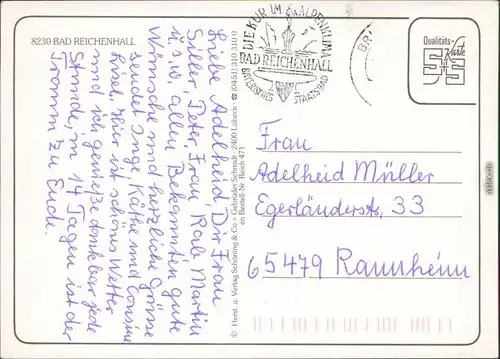 8230 BAD REICHENHALL
Liebe Adelheid, Dir Frau
Siller, Peter, Frau Rab Martin
u.s.w. allen Bekannten gute
Wünsche und herzliche Grüsse
sendet Inge, Käthe und
Hier ist schönes Wetter
und ich genieße dankbar jede
Stunde, in 14 Tagen ist der
Traum zu Ende.
© Herst. u. Verlag Schöning & Co + Gebrüder Schmidt · 2400 Lübeck · ☎ (0451) 310 310 0
en Bestell-Nr. Reich 471
DIE KUR IM ALPENKLIMA
BAD REICHENHALL
BAYERISCHES STAATSBAD
BRI
Qualitäts-
Karte
Frau
Adelheid Müller
Egerländerstr, 33
65479 Raunheim